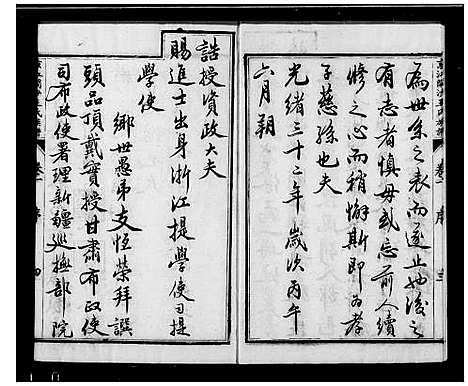 為世系之表而遂止也後之
有志者慎毋或忘前人續
修之心而稍懈斯即為孝
子慈孫也夫
光緒三十二年歲次丙午
六月朔
誥授資政大夫
賜進士出身浙江提學使司提
學使
鄉世愚弟支恆榮拜譔
頭品頂戴實授甘肅布政使
司布政使署理新疆巡撫部院
卷一
序
三
卷一
序
四